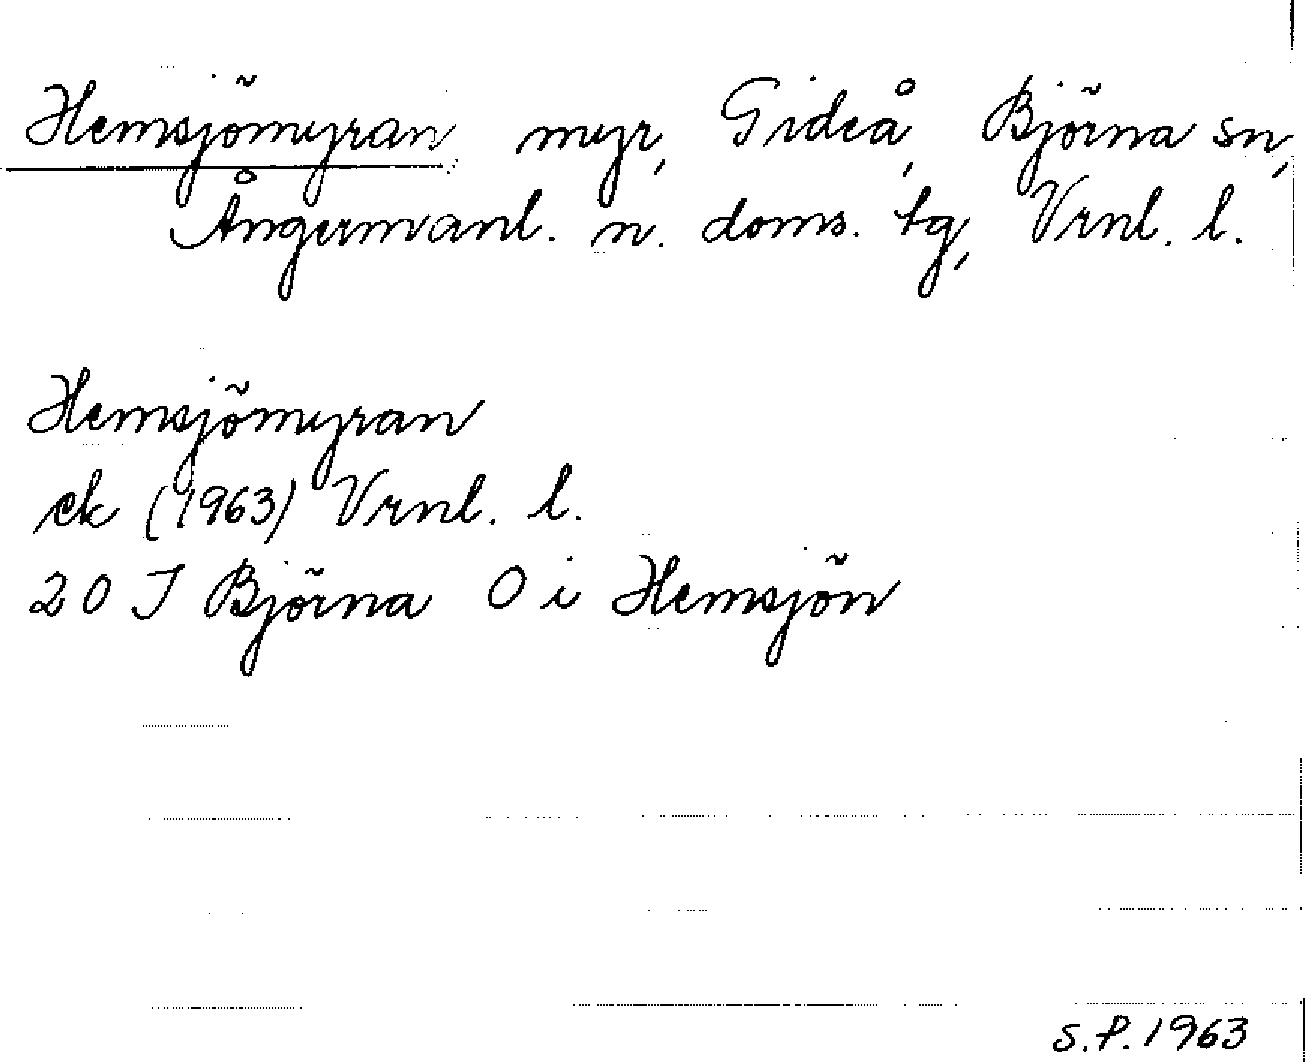 Hemsjömyran myr, Gideå, Björna sn,
Ångermanl. n. doms. tg, Vrnl. l.
Hemsjömyran
ek (1963) Vrnl. l.
20 J Björna O i Hemsjön
S.P. 1963